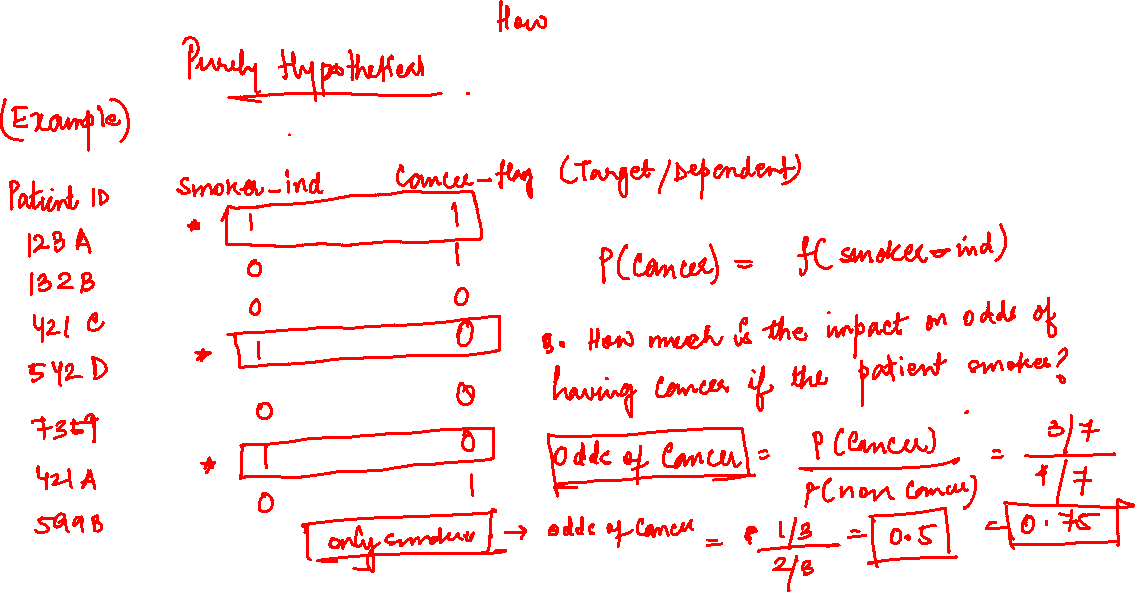 How
Purely Hypothetical
(Example)
Patient ID smoker_ind Cancer_flag (Target/Dependent)
123A * 1 1
132B 0 1
421 C 0 0
542 D * 1 0
0 0
421A * 1 0
599B 0 1
P(Cancer) = f(smoker_ind)
Q. How much is the impact on odds of
having cancer if the patient smokes?
Odds of Cancer = P(Cancer) / P(non cancer) = 3/7 / 4/7 = 0.75
only smokers → odds of Cancer = 1/3 / 2/3 = 0.5